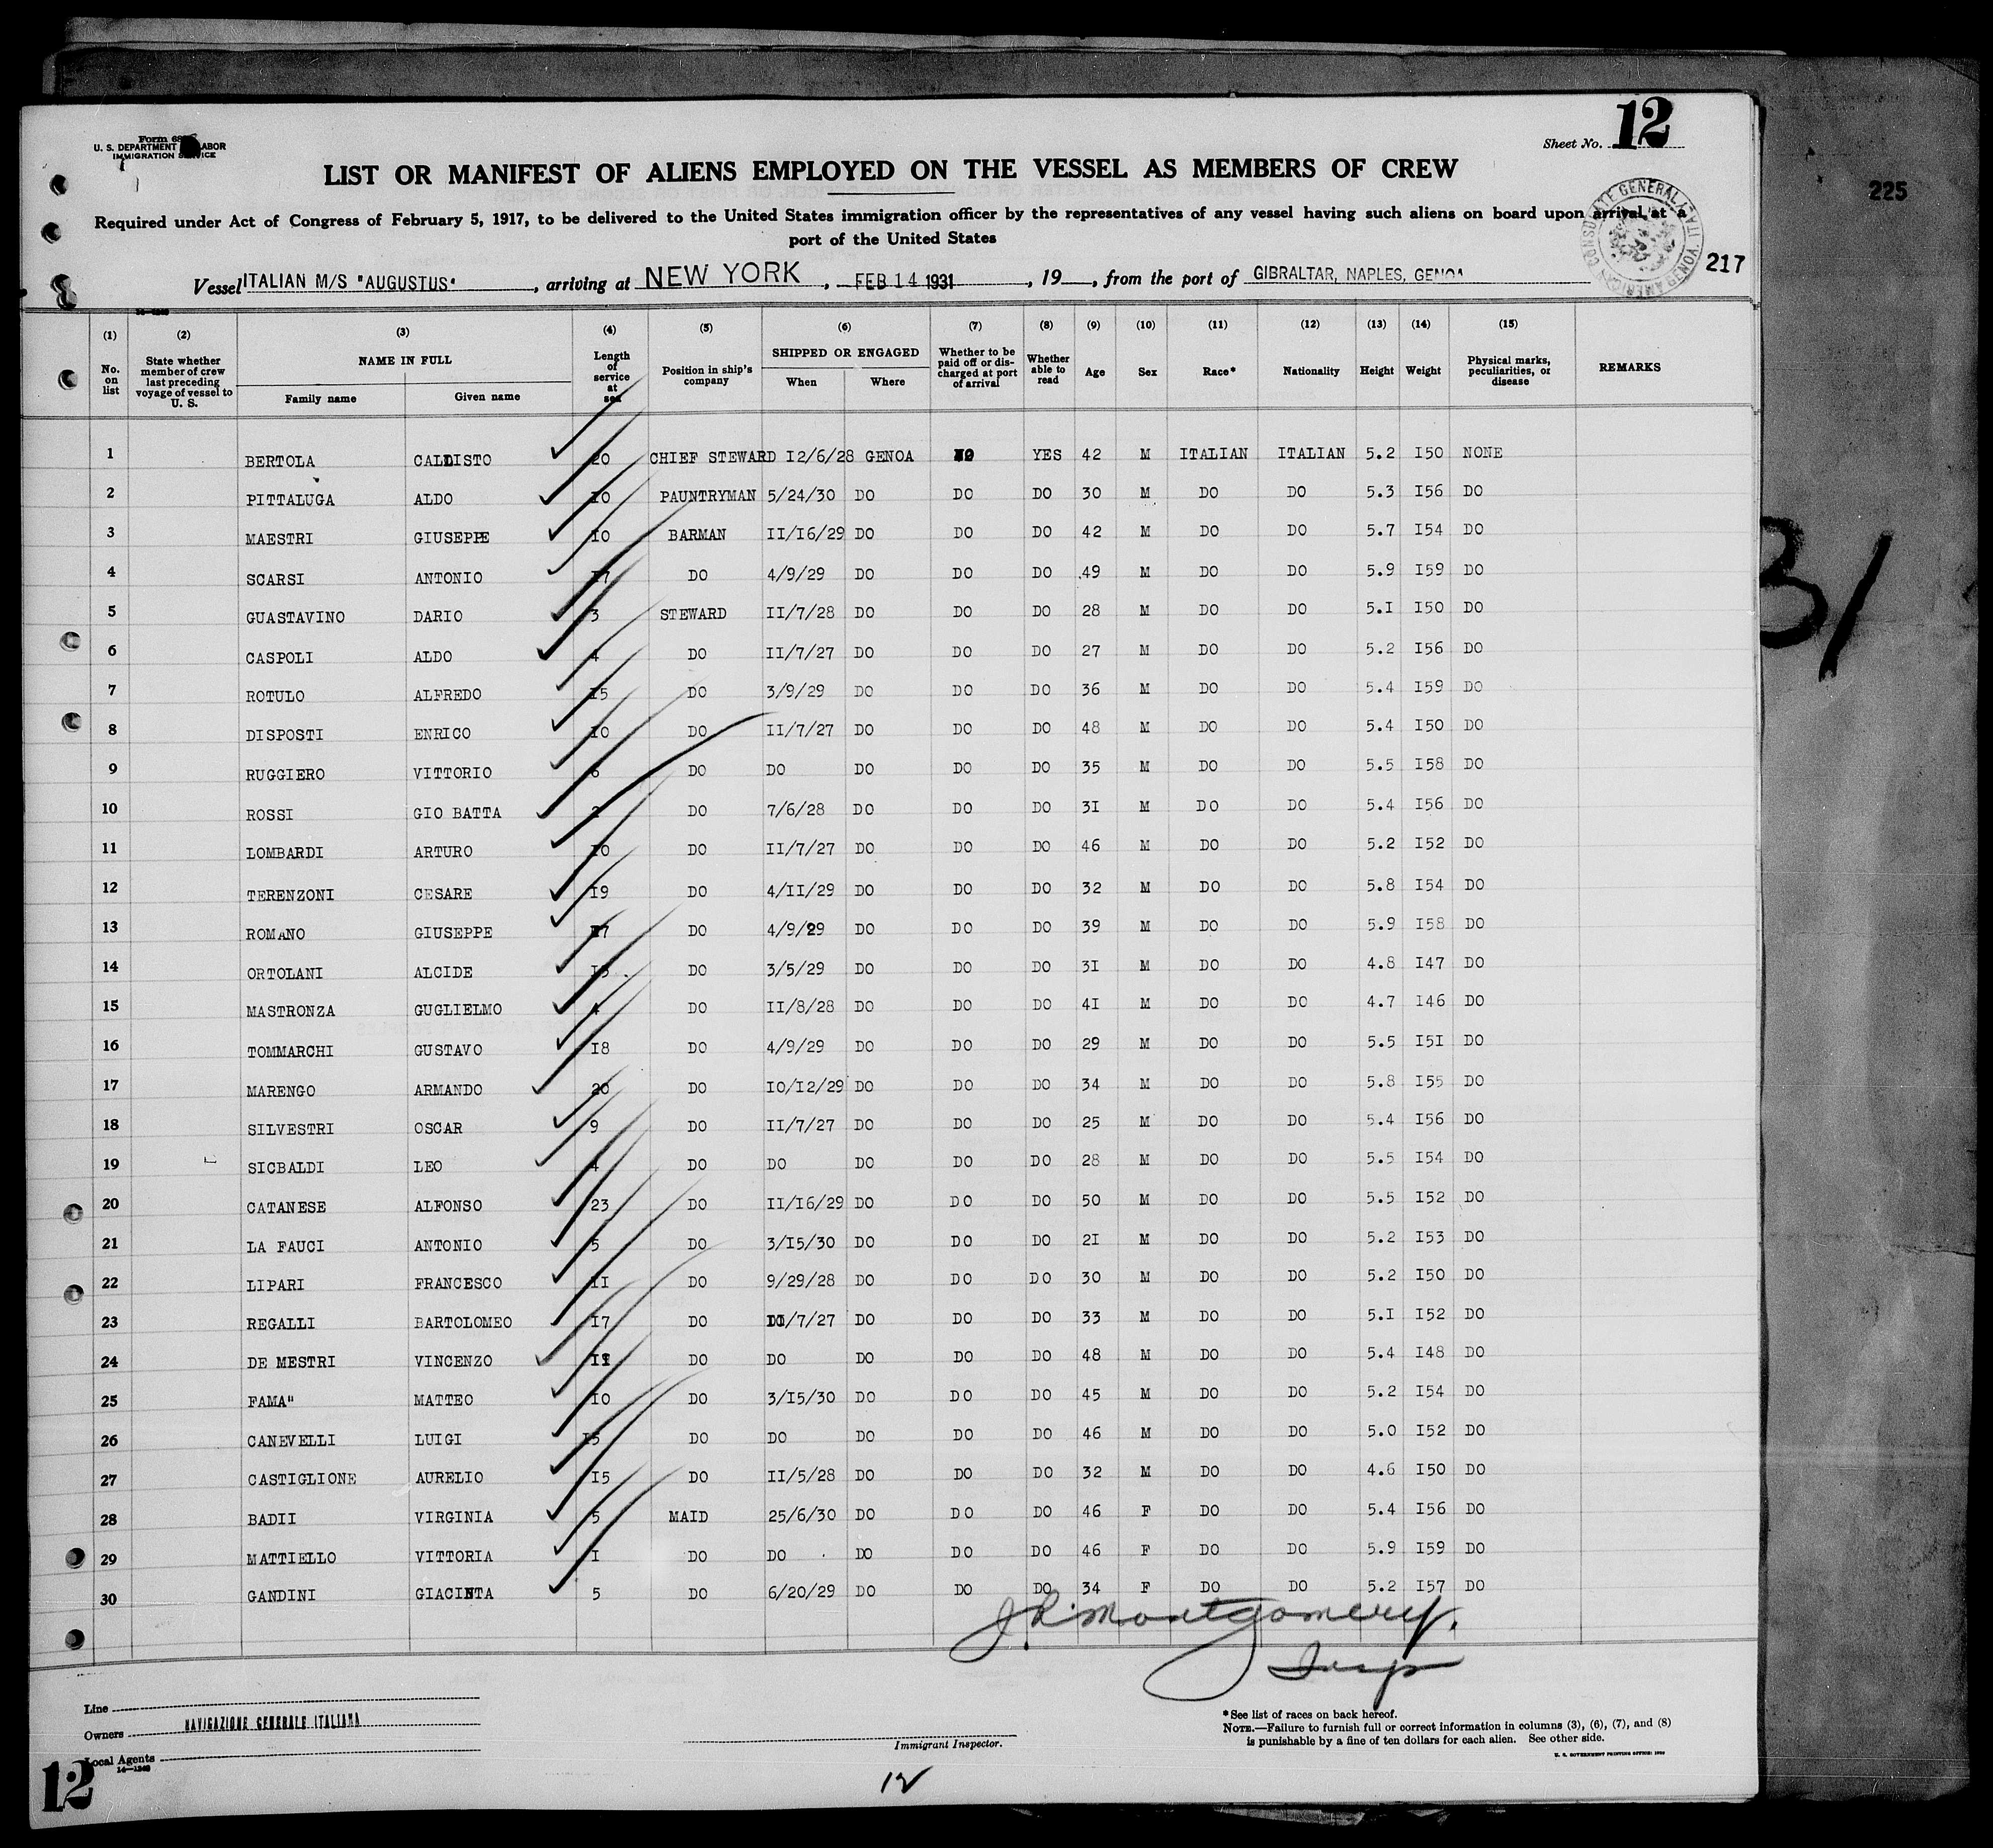 12
Form 68
U. S. DEPARTMENT LABOR
IMMIGRATION SERVICE
Sheet No. 12
LIST OR MANIFEST OF ALIENS EMPLOYED ON THE VESSEL AS MEMBERS OF CREW
225
Required under Act of Congress of February 5, 1917, to be delivered to the United States immigration officer by the representatives of any vessel having such aliens on board upon arrival at a
port of the United States
217
Vessel ITALIAN M/S "AUGUSTUS" , arriving at NEW YORK , FEB 14 1931 , 19 , from the port of GIBRALTAR, NAPLES, GENOA
(1) (2) (3) (4) (5) (6) (7) (8) (9) (10) (11) (12) (13) (14) (15)
No. on list State whether member of crew last preceding voyage of vessel to U. S. NAME IN FULL Family name Given name Length of service at sea Position in ship's company SHIPPED OR ENGAGED When Where Whether to be paid off or discharged at port of arrival Whether able to read Age Sex Race* Nationality Height Weight Physical marks, peculiarities, or disease REMARKS
1 BERTOLA CALLISTO 20 CHIEF STEWARD I2/6/28 GENOA NO YES 42 M ITALIAN ITALIAN 5.2 I50 NONE
2 PITTALUGA ALDO I0 PAUNTRYMAN 5/24/30 DO DO DO 30 M DO DO 5.3 I56 DO
3 MAESTRI GIUSEPPE I0 BARMAN II/I6/29 DO DO DO 42 M DO DO 5.7 I54 DO
4 SCARSI ANTONIO I7 DO 4/9/29 DO DO DO 49 M DO DO 5.9 I59 DO
5 GUASTAVINO DARIO 3 STEWARD II/7/28 DO DO DO 28 M DO DO 5.I I50 DO
6 CASPOLI ALDO 4 DO II/7/27 DO DO DO 27 M DO DO 5.2 I56 DO
7 ROTULO ALFREDO I5 DO 3/9/29 DO DO DO 36 M DO DO 5.4 I59 DO
8 DISPOSTI ENRICO I0 DO II/7/27 DO DO DO 48 M DO DO 5.4 I50 DO
9 RUGGIERO VITTORIO 6 DO DO DO DO DO 35 M DO DO 5.5 I58 DO
10 ROSSI GIO BATTA 2 DO 7/6/28 DO DO DO 3I M DO DO 5.4 I56 DO
11 LOMBARDI ARTURO I0 DO II/7/27 DO DO DO 46 M DO DO 5.2 I52 DO
12 TERENZONI CESARE I9 DO 4/II/29 DO DO DO 32 M DO DO 5.8 I54 DO
13 ROMANO GIUSEPPE I7 DO 4/9/29 DO DO DO 39 M DO DO 5.9 I58 DO
14 ORTOLANI ALCIDE I3 DO 3/5/29 DO DO DO 3I M DO DO 4.8 I47 DO
15 MASTRONZA GUGLIELMO 4 DO II/8/28 DO DO DO 4I M DO DO 4.7 I46 DO
16 TOMMARCHI GUSTAVO I8 DO 4/9/29 DO DO DO 29 M DO DO 5.5 I5I DO
17 MARENGO ARMANDO 20 DO I0/I2/29 DO DO DO 34 M DO DO 5.8 I55 DO
18 SILVESTRI OSCAR 9 DO II/7/27 DO DO DO 25 M DO DO 5.4 I56 DO
19 SICBALDI LEO 4 DO DO DO DO DO 28 M DO DO 5.5 I54 DO
20 CATANESE ALFONSO 23 DO II/I6/29 DO DO DO 50 M DO DO 5.5 I52 DO
21 LA FAUCI ANTONIO 5 DO 3/I5/30 DO DO DO 2I M DO DO 5.2 I53 DO
22 LIPARI FRANCESCO II DO 9/29/28 DO DO DO 30 M DO DO 5.2 I50 DO
23 REGALLI BARTOLOMEO I7 DO II/7/27 DO DO DO 33 M DO DO 5.I I52 DO
24 DE MESTRI VINCENZO DO DO DO DO DO 48 M DO DO 5.4 I48 DO
25 FAMA" MATTEO I0 DO 3/I5/30 DO DO DO 45 M DO DO 5.2 I54 DO
26 CANEVELLI LUIGI I5 DO DO DO DO DO 46 M DO DO 5.0 I52 DO
27 CASTIGLIONE AURELIO I5 DO II/5/28 DO DO DO 32 M DO DO 4.6 I50 DO
28 BADII VIRGINIA 5 MAID 25/6/30 DO DO DO 46 F DO DO 5.4 I56 DO
29 MATTIELLO VITTORIA I DO DO DO DO DO 46 F DO DO 5.9 I59 DO
30 GANDINI GIACINTA 5 DO 6/20/29 DO DO DO 34 F DO DO 5.2 I57 DO
J R Montgomery.
Insp
Line
Owners NAVIGAZIONE GENERALE ITALIANA
Local Agents
14—1240
Immigrant Inspector.
*See list of races on back hereof.
NOTE.—Failure to furnish full or correct information in columns (3), (6), (7), and (8)
is punishable by a fine of ten dollars for each alien. See other side.
U. S. GOVERNMENT PRINTING OFFICE:
12
12